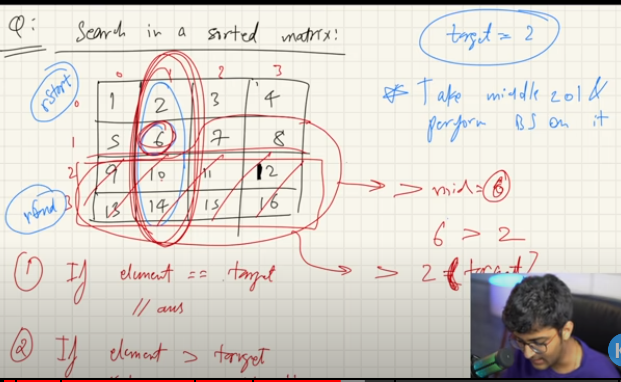 Q: Search in a sorted matrix:
target = 2
rStart
0 1 2 3
0 1 2 3 4
1 5 6 7 8
2 9 10 11 12
3 13 14 15 16
rEnd
* Take middle col &
perform BS on it
> mid = 6
6 > 2
> 2 (target)
① If element == target
// ans
② If element > target